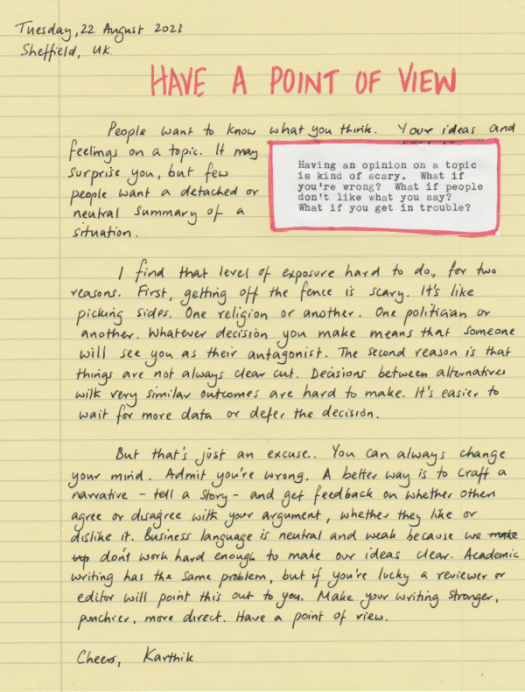 Tuesday, 22 August 2023
Sheffield, UK
HAVE A POINT OF VIEW
People want to know what you think. Your ideas and
feelings on a topic. It may
surprise you, but few
people want a detached or
neutral summary of a
situation.
Having an opinion on a topic
is kind of scary. What if
you're wrong? What if people
don't like what you say?
What if you get in trouble?
I find that level of exposure hard to do, for two
reasons. First, getting off the fence is scary. It's like
picking sides. One religion or another. One politician or
another. Whatever decision you make means that someone
will see you as their antagonist. The second reason is that
things are not always clear cut. Decisions between alternatives
with very similar outcomes are hard to make. It's easier to
wait for more data or defer the decision.
But that's just an excuse.. You can always change
your mind. Admit you're wrong. A better way is to craft a
narrative - tell a story - and get feedback on whether others
agree or disagree with your argument, whether they like or
dislike it. Business language is neutral and weak because we make
up don't work hard enough to make our ideas clear. Academic
writing has the same problem, but if you're lucky a reviewer or
editor will point this out to you. Make your writing stronger,
punchier, more direct. Have a point of view.
Cheers, Karthik